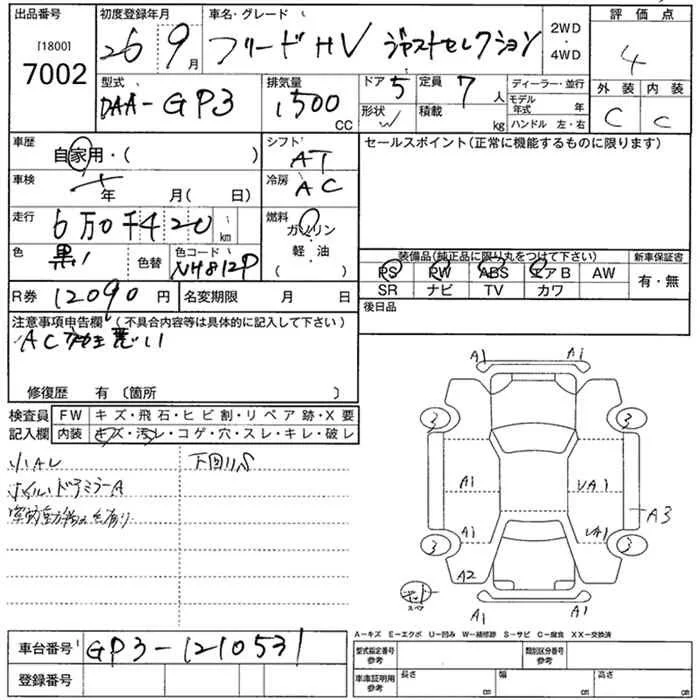 出品番号 初度登録年月 車名・グレード 2WD・4WD 評価点
[1800]
7002 26 9月 フリードHV ジャストセレクション 4
型式 排気量 ドア 定員 ディーラー・並行 外装 内装
DAA-GP3 1500 CC 5 7人 モデル年式 年 C C
形状 W 積載 kg ハンドル 左・右
車歴 自家用・( ) シフト AT セールスポイント(正常に機能するものに限ります)
車検 年 月( 日) 冷房 AC
走行 6万0千420km 燃料 ガソリン
軽油
( )
色 黒 色替 色コード NH812P
装備品(純正品に限り丸をつけて下さい) 新車保証書
PS PW ABS エアB AW 有・無
SR ナビ TV カワ
R券 12090円 名変期限 月 日 後日品
注意事項申告欄 (不具合内容等は具体的に記入して下さい)
AC 悪い
修復歴 有 〔箇所 〕
検査員記入欄 FW キズ・飛石・ヒビ割・リペア跡・X要
内装 キズ・汚レ・コゲ・穴・スレ・キレ・破レ
小AL 下回りS
ホイル、ドアミラーA
A1 A1
3 3
A1 UA1
A3
A1 UA1
3 3
A2
スペア
A1 A1
A-キズ E-エクボ U-凹み W-補修跡 S-サビ C-腐食 XX-交換済
車台番号 GP3-1210531 型式指定番号 参考 類別区分番号 参考
登録番号 車庫証明用 参考 長さ cm 幅 cm 高さ cm